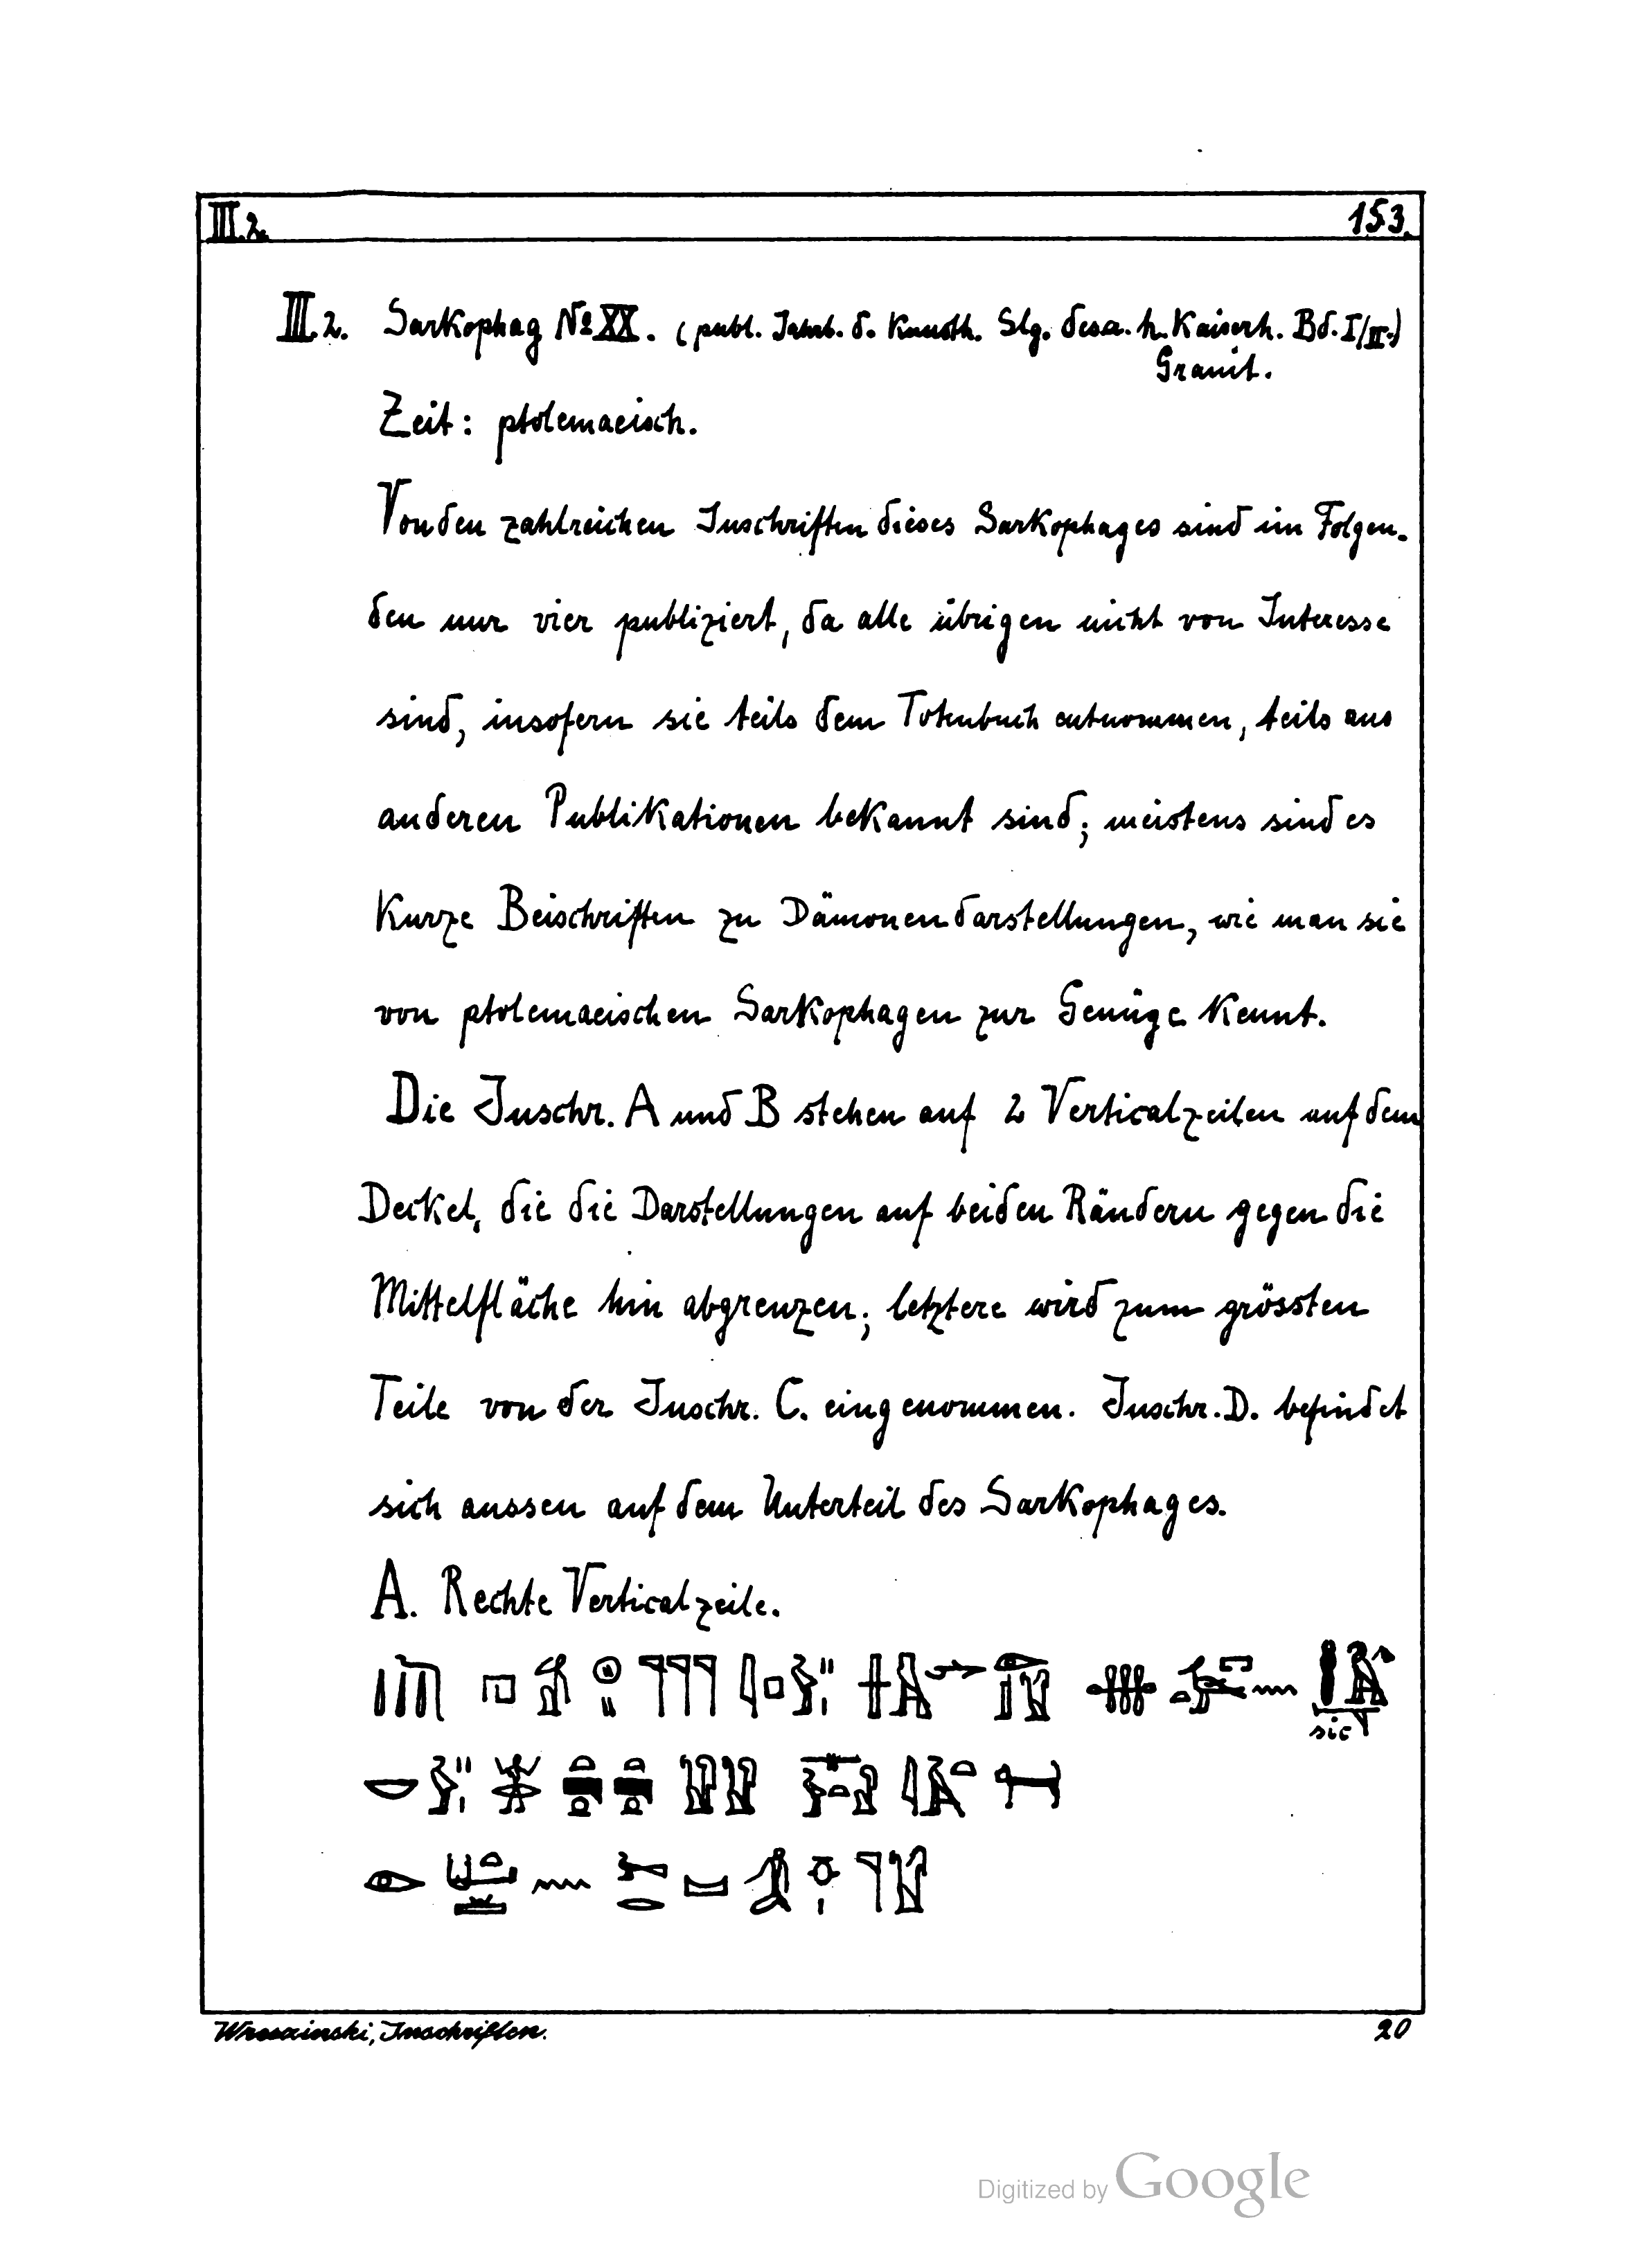 III.2.
153.
III.2. Sarkophag No XX. (publ. Jahrb. d. Kunsth. Slg. des a. h. Kaiserh. Bd. I/II.)
Granit.
Zeit: ptolemaeisch.
Von den zahlreichen Inschriften dieses Sarkophages sind im Folgen-
den nur vier publiziert, da alle übrigen nicht von Interesse
sind, insofern sie teils dem Totenbuch entnommen, teils aus
anderen Publikationen bekannt sind; meistens sind es
kurze Beischriften zu Dämonendarstellungen, wie man sie
von ptolemaeischen Sarkophagen zur Genüge kennt.
Die Inschr. A und B stehen auf 2 Verticalzeilen auf dem
Deckel, die die Darstellungen auf beiden Rändern gegen die
Mittelfläche hin abgrenzen; letztere wird zum grössten
Teile von der Inschr. C. eingenommen. Inschr. D. befindet
sich aussen auf dem Unterteil des Sarkophages.
A. Rechte Verticalzeile.
sic
Wreszinski, Inschriften.
20
Digitized by Google